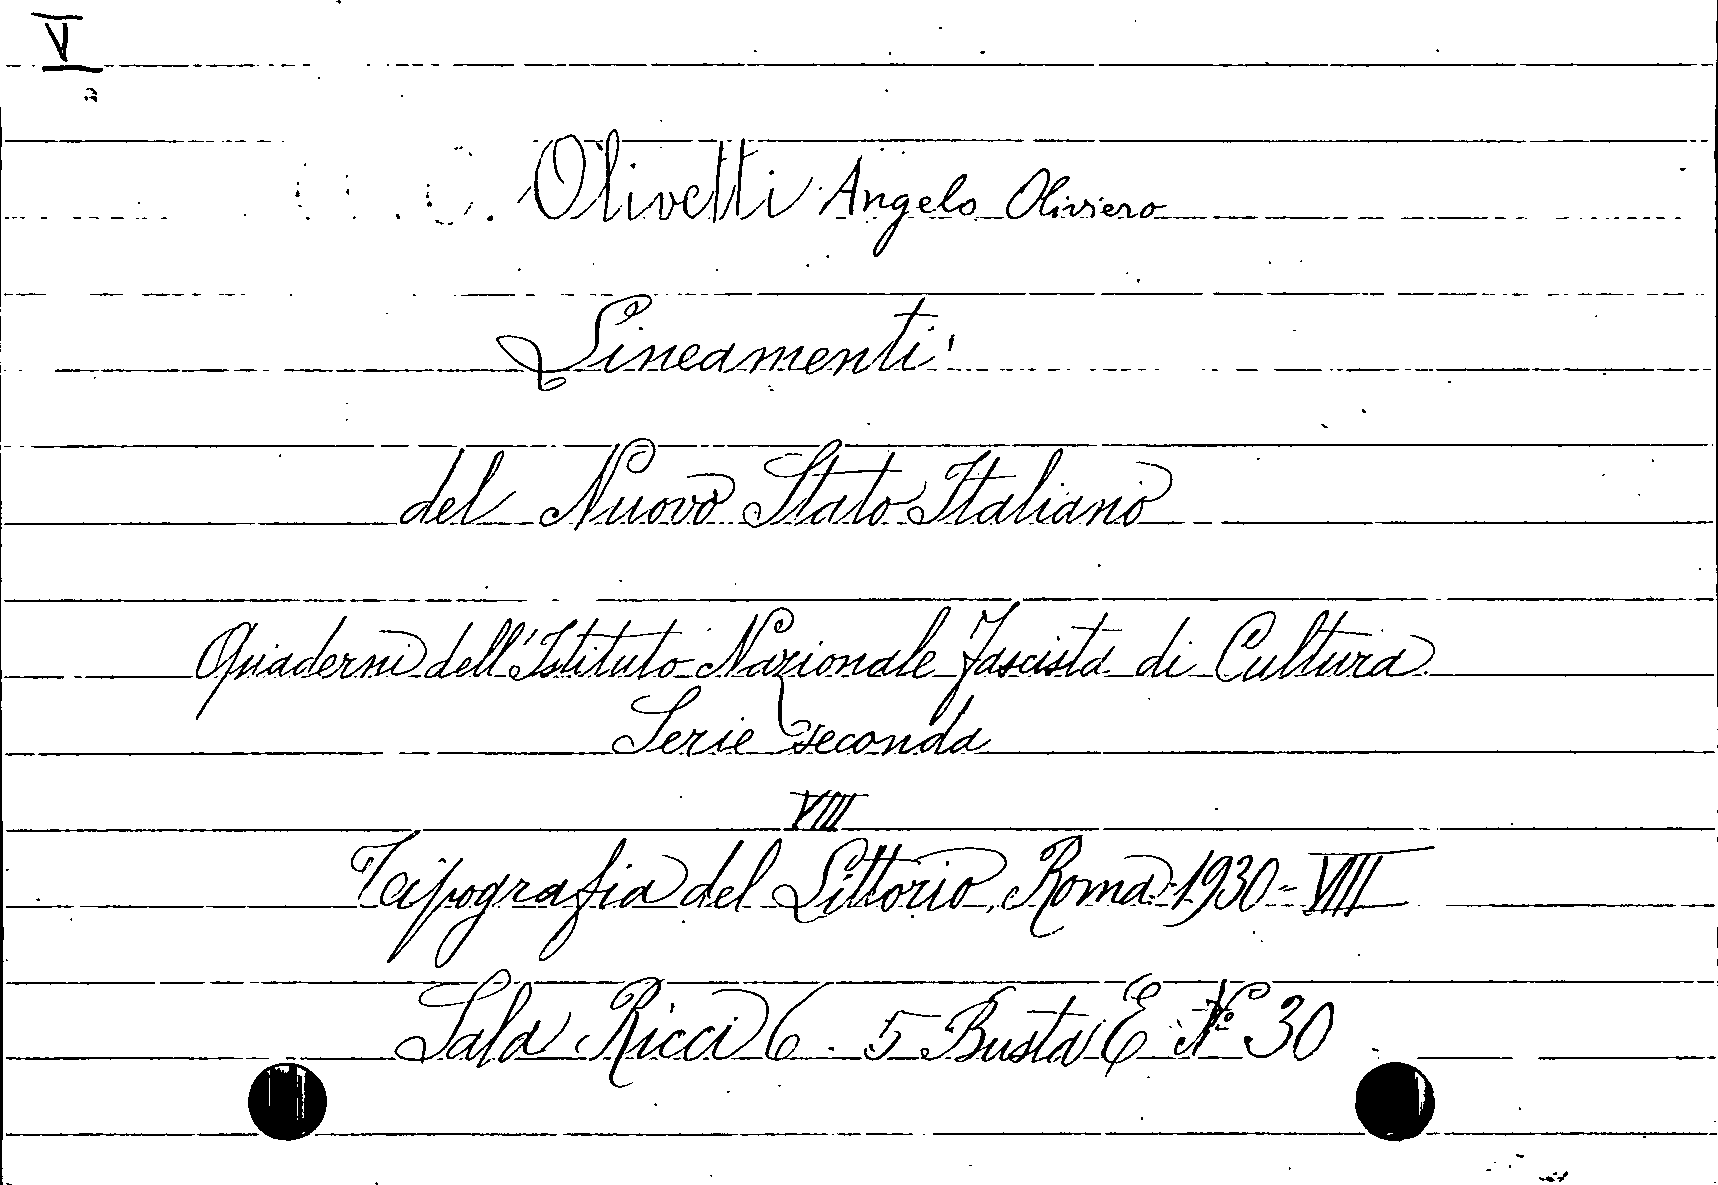 V
Olivetti Angelo Oliviero
Lineamenti
del Nuovo Stato Italiano
Quaderni dell'Istituto Nazionale Fascista di Cultura
Serie seconda
VIII
Tipografia del Littorio, Roma 1930 - VIII
Sala Ricci 6. 5 Busta E N° 30